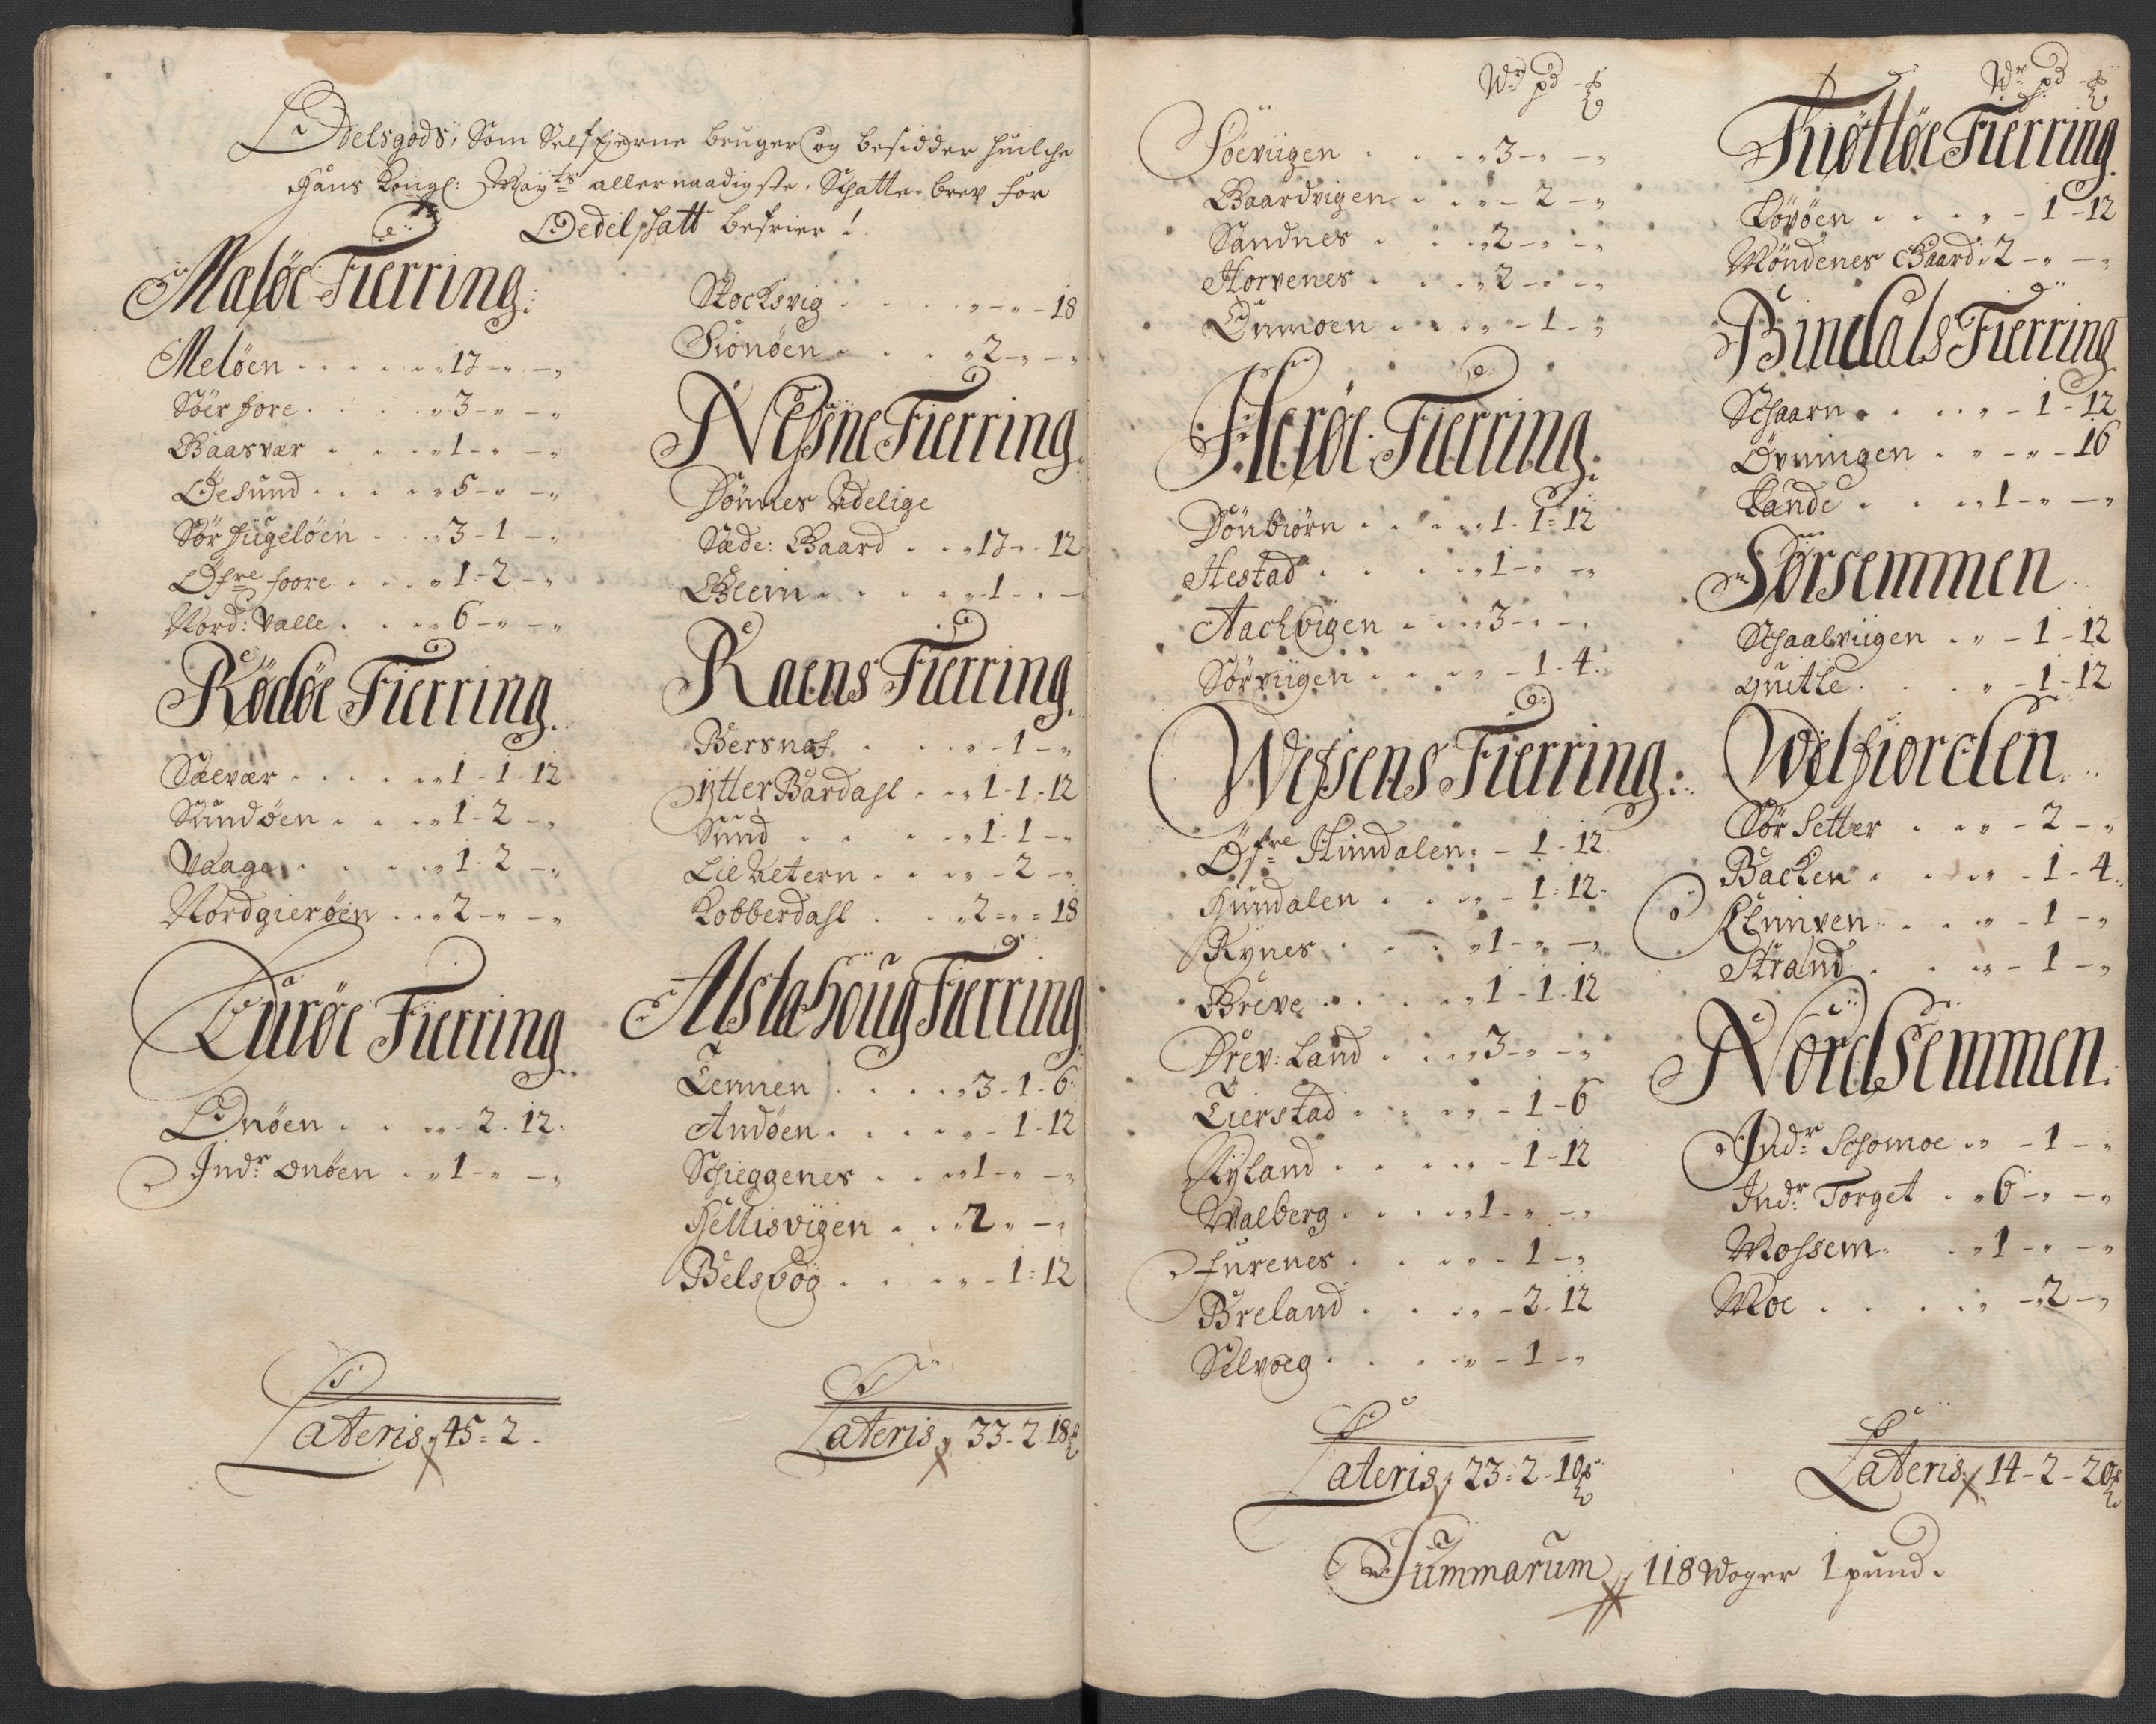 Odelsgods, Som Selffejerne bruger og besidder huilche
Hans Kongl: Mayts allernaadigste Schatte-brev for
Oedelschatt befrier!
Meløe Fierring:
Meløen . . . . „ 17 - „ - „
Söer fore . . . . „ 3 - „ - „
Baasvær . . . „ 1 - „ - „
Øesund . . . . „ 5 - „ - „
Sör fugeløen . . „ 3 - 1 - „
Øfre foore . . . „ 1 - 2 - „
Nord: Valle . . . „ 6 - „ - „
Rödöe Fierring.
Sævær . . . . „ 1 - 1 - 12
Sundøen . . . „ 1 - 2 - „
Vaage . . . . „ 1 - 2 - „
Nordgierøen . . . „ 2 - „ - „
Lurøe Fierring.
Onöen . . . „ - 2 - 12.
Indr onöen . . „ 1 - „ - „
Lateris 45 = 2 -
Stocksvig . . . . „ - „ - 18
Sionöen . . . „ 2 - „ - „
Nessne Fierring.
Dönnes Adelige
Sæde: Gaard . . „ 17 - „ - 12
Gleein . . . . „ 1 - „ -
Raens Fierring.
Bersnaf . . . „ - 1 - „
Ytter Bardahl . . „ 1 - 1 - 12
Sund . . . . „ 1 - 1 - „
Lie Uetern . . . „ - 2 - „
Kobberdahl . . „ 2 = „ = 18
Alstahoug Fierring
Tennen . . . . „ 3 - 1 - 6
Andöen . . . . „ - 1 - 12
Schieggenes . . „ 1 - „ - „
Hellisvigen . . „ 2 „ - „
Belsvog . . . „ - 1 = 12
Lateris 33 - 2 18
Wr pd
Söeviigen . . . „ 3 - „ - „
Gaardvigen . . „ - 2 - „
Sandnes . . . „ 2 - „ - „
Horvenes . . . „ 2 - „ - „
Dumoen . . . „ - 1 - „
Herøe Fierring.
Dönbiörn . . . „ 1 - 1 = 12
Hestad . . . . „ 1 - „ - „
Aachvigen . . . „ 3 - „ - „
Sörviigen . . . „ - 1 - 4.
Wefsens Fierring:
Øfre Hundalen „ - 1 - 12
Hundalen . . . „ - 1 = 12
Rynes . . . . „ 1 - „ - „
Greve . . . . „ 1 - 1 - 12
Drev: Land . . . „ 3 - „ - „
Tierstad . . . „ - 1 - 6
Nyland . . . . „ - 1 - 12
Walberg . . . . „ 1 - „ - „
Furenes . . . „ - 1 - „
Breland . . . „ - 2 - 12
Selvoeg . . . „ - 1 - „
Lateris 23 = 2 - 10
Wr pd
Tiøttøe Fierring.
Løvøen . . . . „ - 1 - 12
Möndenes Gaard: 2 - „ - „
Bindals Fierring
Schaarn . . . „ - 1 - 12
Övningen . . „ - „ - 16
Lande . . . „ 1 - „ - „
Sørsemmen
Schaalviigen . . „ - 1 - 12
Quitle . . . „ - 1 - 12
Welfiorden.
Sör Setter . . . „ - 2 - „
Backen . . . „ - 1 - 4.
Klunven . . . „ - 1 - „
Strand . . . „ - 1 - „
Nordsemmen.
Indr Schomoe . „ - 1 - „
Indr Torget . . „ 6 - „ - „
Mossem . . . „ 1 - „ - „
Moe . . . . . „ - 2 - „
Lateris 14 - 2 - 20
Summarum 118 Woger 1 pund.